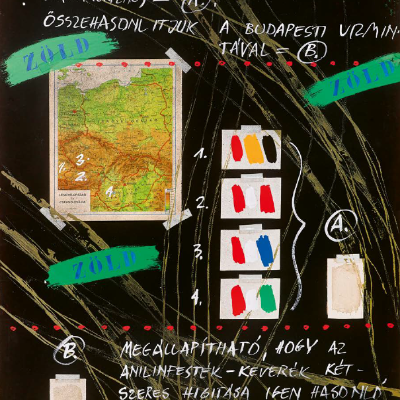 ÖSSZEHASONLÍTJUK A BUDAPESTI VIZMIN-
TÁVAL = B.
ZÖLD
ZÖLD
1. 3.
2.
4.
1.
2.
3.
4.
A.
ZÖLD
B.
MEGÁLLAPÍTHATÓ, HOGY AZ
ANILINFESTÉK-KEVERÉK KÉT-
SZERES HIGITÁSA IGEN HASONLÓ